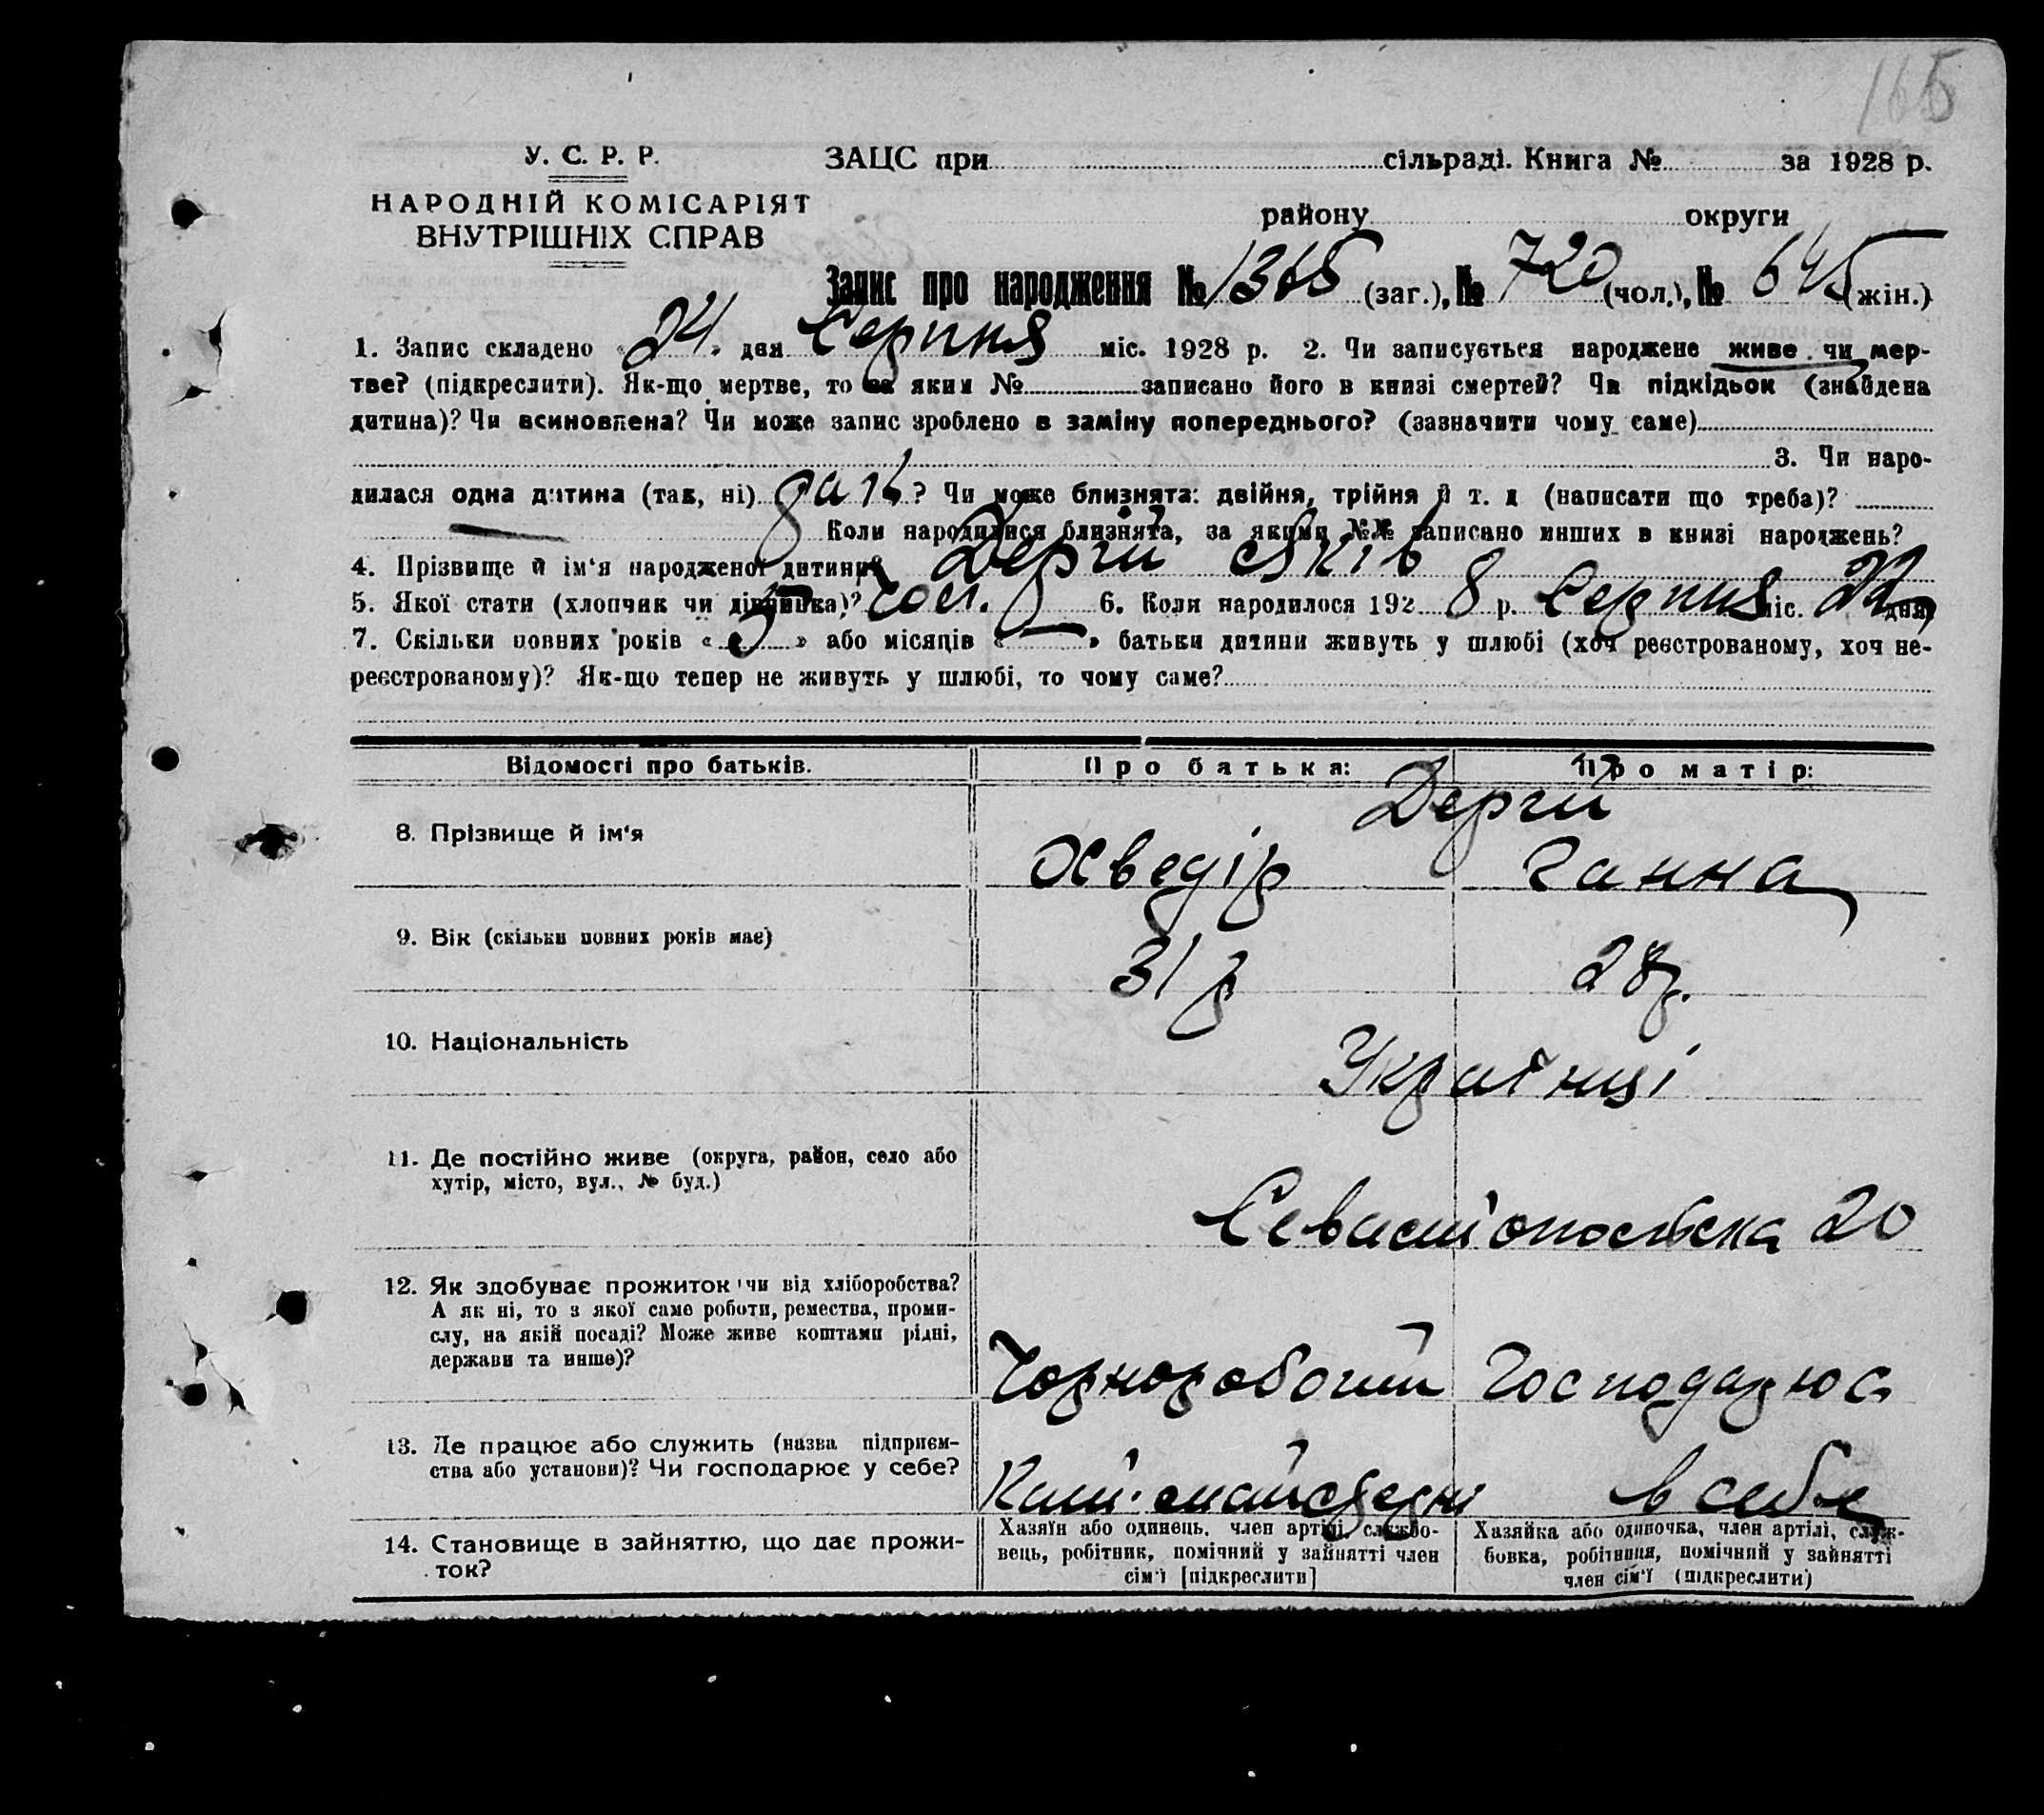 165
У. С. Р. Р.
ЗАЦС при сільраді. Книга № за 1928 р.
НАРОДНІЙ КОМІСАРІЯТ
ВНУТРІШНІХ СПРАВ
району округи
Запис про народження № 1365 (заг.), № 720 (чол.), № 645 (жін.)
1. Запис складено „24" дня Серпня міс. 1928 р. 2. Чи записується народжене живе чи мер-
тве? (підкреслити). Як-що мертве, то за яким № записано його в книзі смертей? Чи підкідьок (знайдена
дитина)? Чи всиновлена? Чи може запис зроблено в заміну попереднього? (зазначити чому саме)
3. Чи наро-
дилася одна дитина (так, ні) ? Чи може близнята: двійня, трійня й т. д (написати що треба)?
— Коли народилися близнята, за якими №№ записано инших в книзі народжень?
4. Прізвище й ім'я народженої дитини? Дергій Яків
5. Якої стати (хлопчик чи дівчинка)? чол. 6. Коли народилося 192 8 р. Серпня міс. 22 дня
7. Скільки повних років « » або місяців « — » батьки дитини живуть у шлюбі (хоч реєстрованому, хоч не-
реєстрованому)? Як-що тепер не живуть у шлюбі, то чому саме?
Відомості про батьків. Про батька: Про матір:
Дергій
8. Прізвище й ім'я Хведір Ганна
9. Вік (скільки повних років має) 31 р 28 р.
10. Національність Українці
11. Де постійно живе (округа, район, село або
хутір, місто, вул., № буд.)
Севастопольска 20
12. Як здобуває прожиток чи від хліборобства?
А як ні, то з якої саме роботи, ремества, проми-
слу, на якій посаді? Може живе коштами рідні,
держави та инше)?
Чорноробочий Господарює
13. Де працює або служить (назва підприєм-
ства або установи)? Чи господарює у себе?
в себе
14. Становище в зайняттю, що дає прожи-
ток?
Хазяїн або одинець, член артілі, службо-
вець, робітник, помічний у зайнятті член
сім'ї [підкреслити]
Хазяйка або одиночка, член артілі, служ-
бовка, робітниця, помічний у зайнятті
член сім'ї (підкреслити)